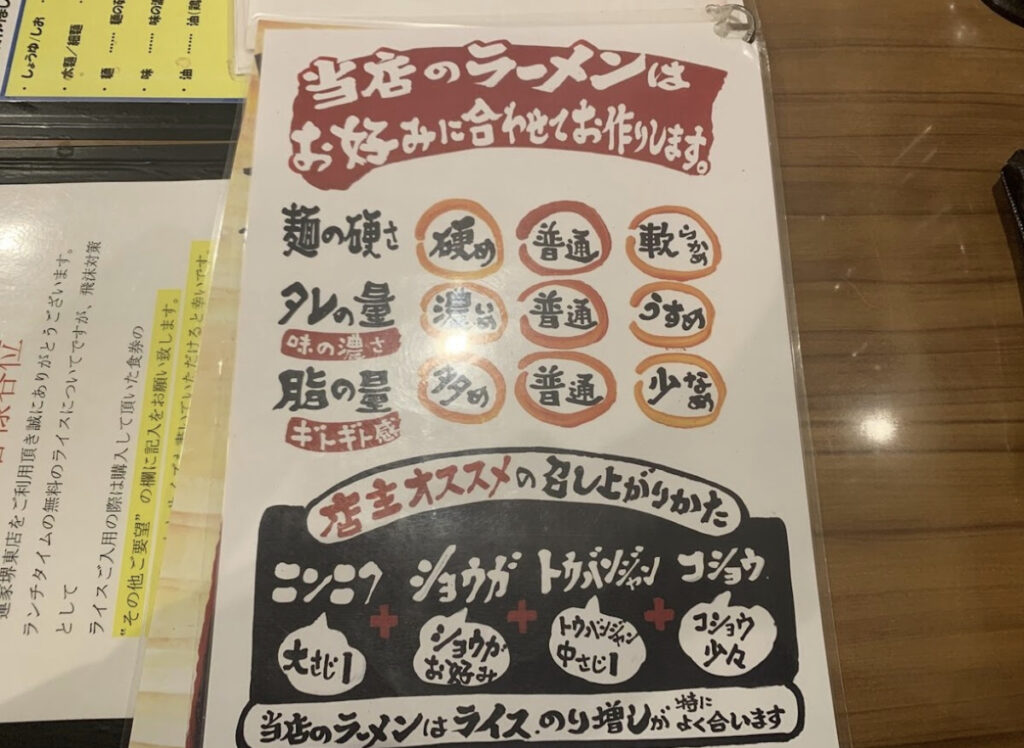 ・しょうゆ/しお
・太麺/細麺
・麺 …… 麺の硬
・味 …… 味の濃
・油 …… 油(鶏
当店のラーメンは
お好みに合わせてお作りします。
麺の硬さ 硬め 普通 軟らかめ
タレの量 濃いめ 普通 うすめ
味の濃さ
脂の量 多め 普通 少なめ
ギトギト感
店主オススメの召し上がりかた
ニンニク + ショウガ + トウバンジャン + コショウ
大さじ1 ショウガお好み トウバンジャン中さじ1 コショウ少々
当店のラーメンはライス、のり増しが特によく合います
客様各位
達家堺東店をご利用頂き誠にありがとうございます。
ランチタイムの無料のライスについてですが、飛沫対策
として
ライスご入用の際は購入して頂いた食券の
"その他ご要望" の欄に記入をお願い致します。
書いていただけると幸いです。